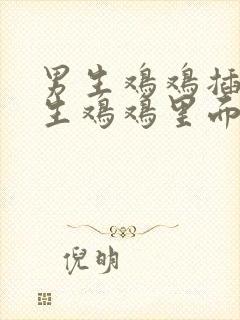 男生鸡鸡插
生鸡鸡里而
倪明